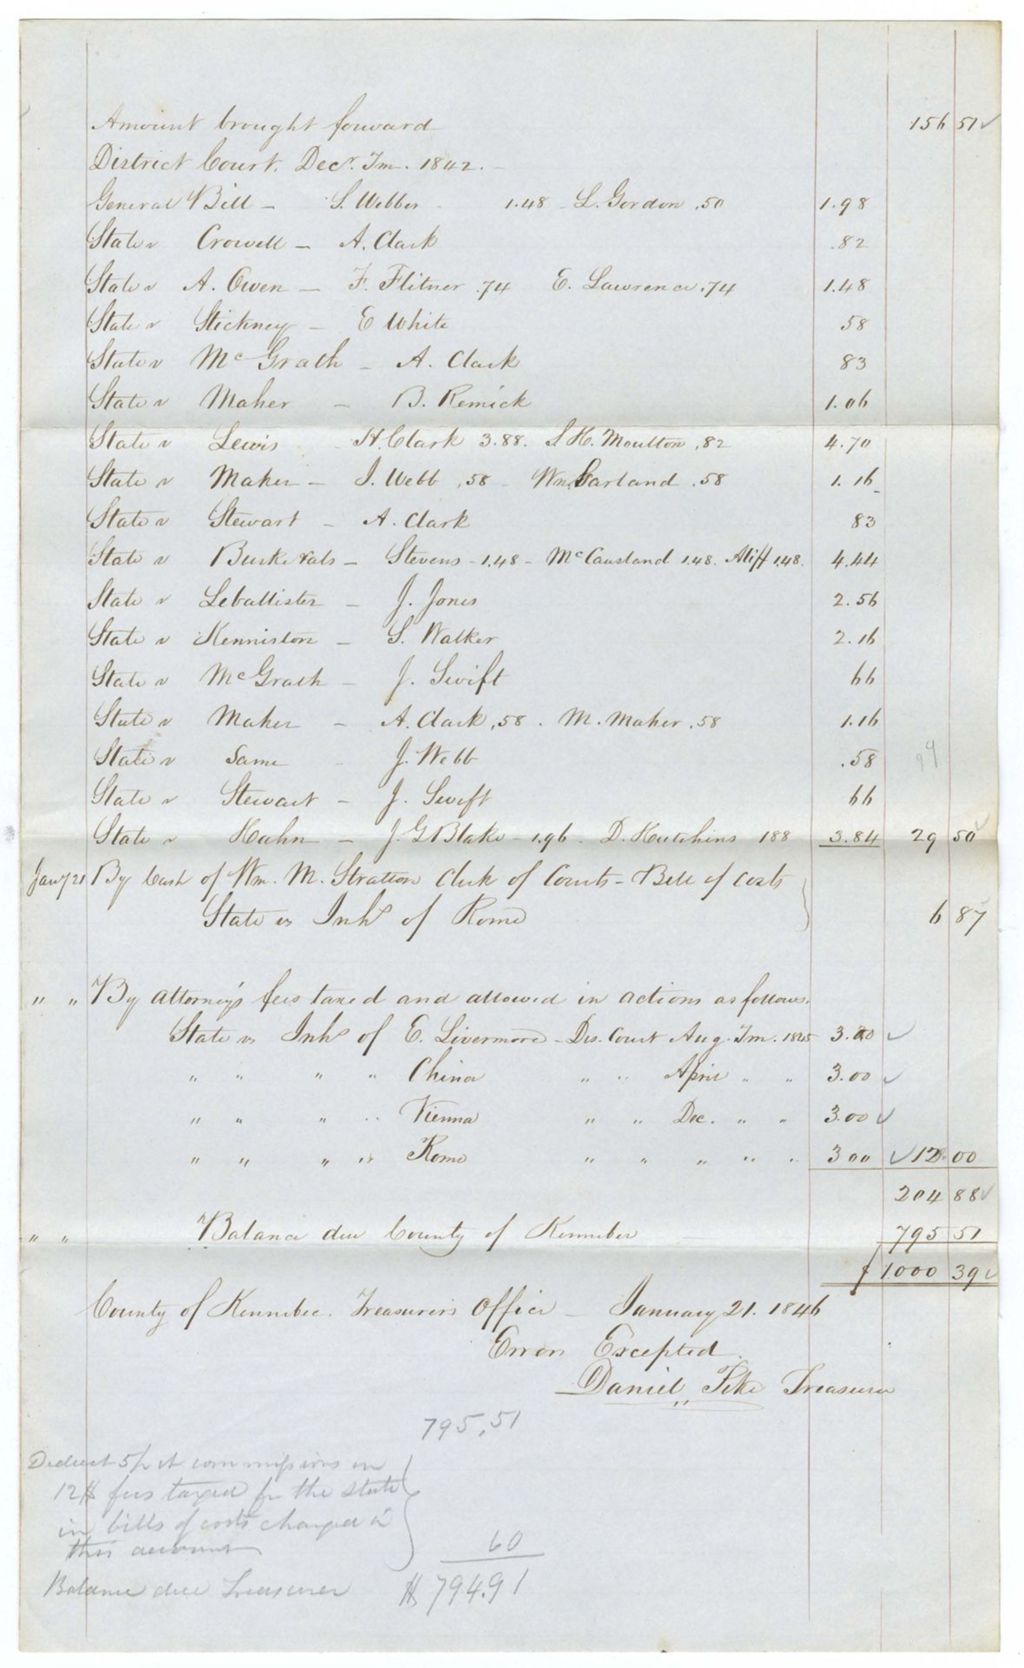 Amount brought forward 156 51
District Court. Decr. Tm. 1842.
General Bill - S. Webber 1.48 - L. Gordon .50 1.98
State v Crowell - A. Clark .82
State v A. Owen - F. Flitner .74 E. Lawrence .74 1.48
State v Stickney - E White 58
State v McGrath - A. Clark 83
State v Maher - B. Remick 1.06
State v Lewis A. Clark 3.88. S H. Moulton .82 4.70
State v Maher - J. Webb .58 - Wm. Garland .58 1.16
State v Stewart - A. Clark 83
State v Burke & als - Stevens - 1.48 - McCausland 1.48. Aliff 1.48. 4.44
State v Leballister - J. Jones 2.56
State v Kenniston - S. Walker 2.16
State v McGrath - J. Swift 66
State v Maher - A. Clark .58 . M. Maher .58 1.16
State v Same J. Webb .58
State v Stewart - J. Swift 66
State v Hahn - J. G Blake - 1.96 . D. Hutchins 188 3.84 29 50
Jany 21 By Cash of Wm. M. Stratton Clerk of Courts - Bill of Costs
State vs Inhs of Rome 6 87
" " By attorney's fees taxed and allowed in actions as follows.
State vs Inhs of E. Livermore - Dis. Court Aug. Tm. 1845 3.00
" " " " China " " April " " 3.00
" " " " Vienna " " Dec. " " 3.00
" " " " Rome " " " " " 3 00 12.00
204 88
" " Balance due County of Kennebec 795 51
$ 1000 39
County of Kennebec. Treasurer's Office - January 21. 1846
Errors Excepted.
Daniel Pike Treasurer
795.51
Deduct 5 pr ct commissions on
12$ fees taxed for the state
in bills of costs charged in
this account 60
Balance due Treasurer $ 794.91